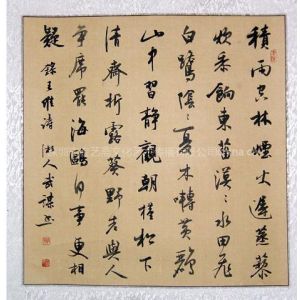 積雨空林煙火遲蒸藜
炊黍餉東菑漠〻水田飛
白鷺陰〻夏木囀黃鸝
山中習靜觀朝槿松下
清齋折露葵野老與人
爭席罷海鷗何事更相
疑 錄王維詩